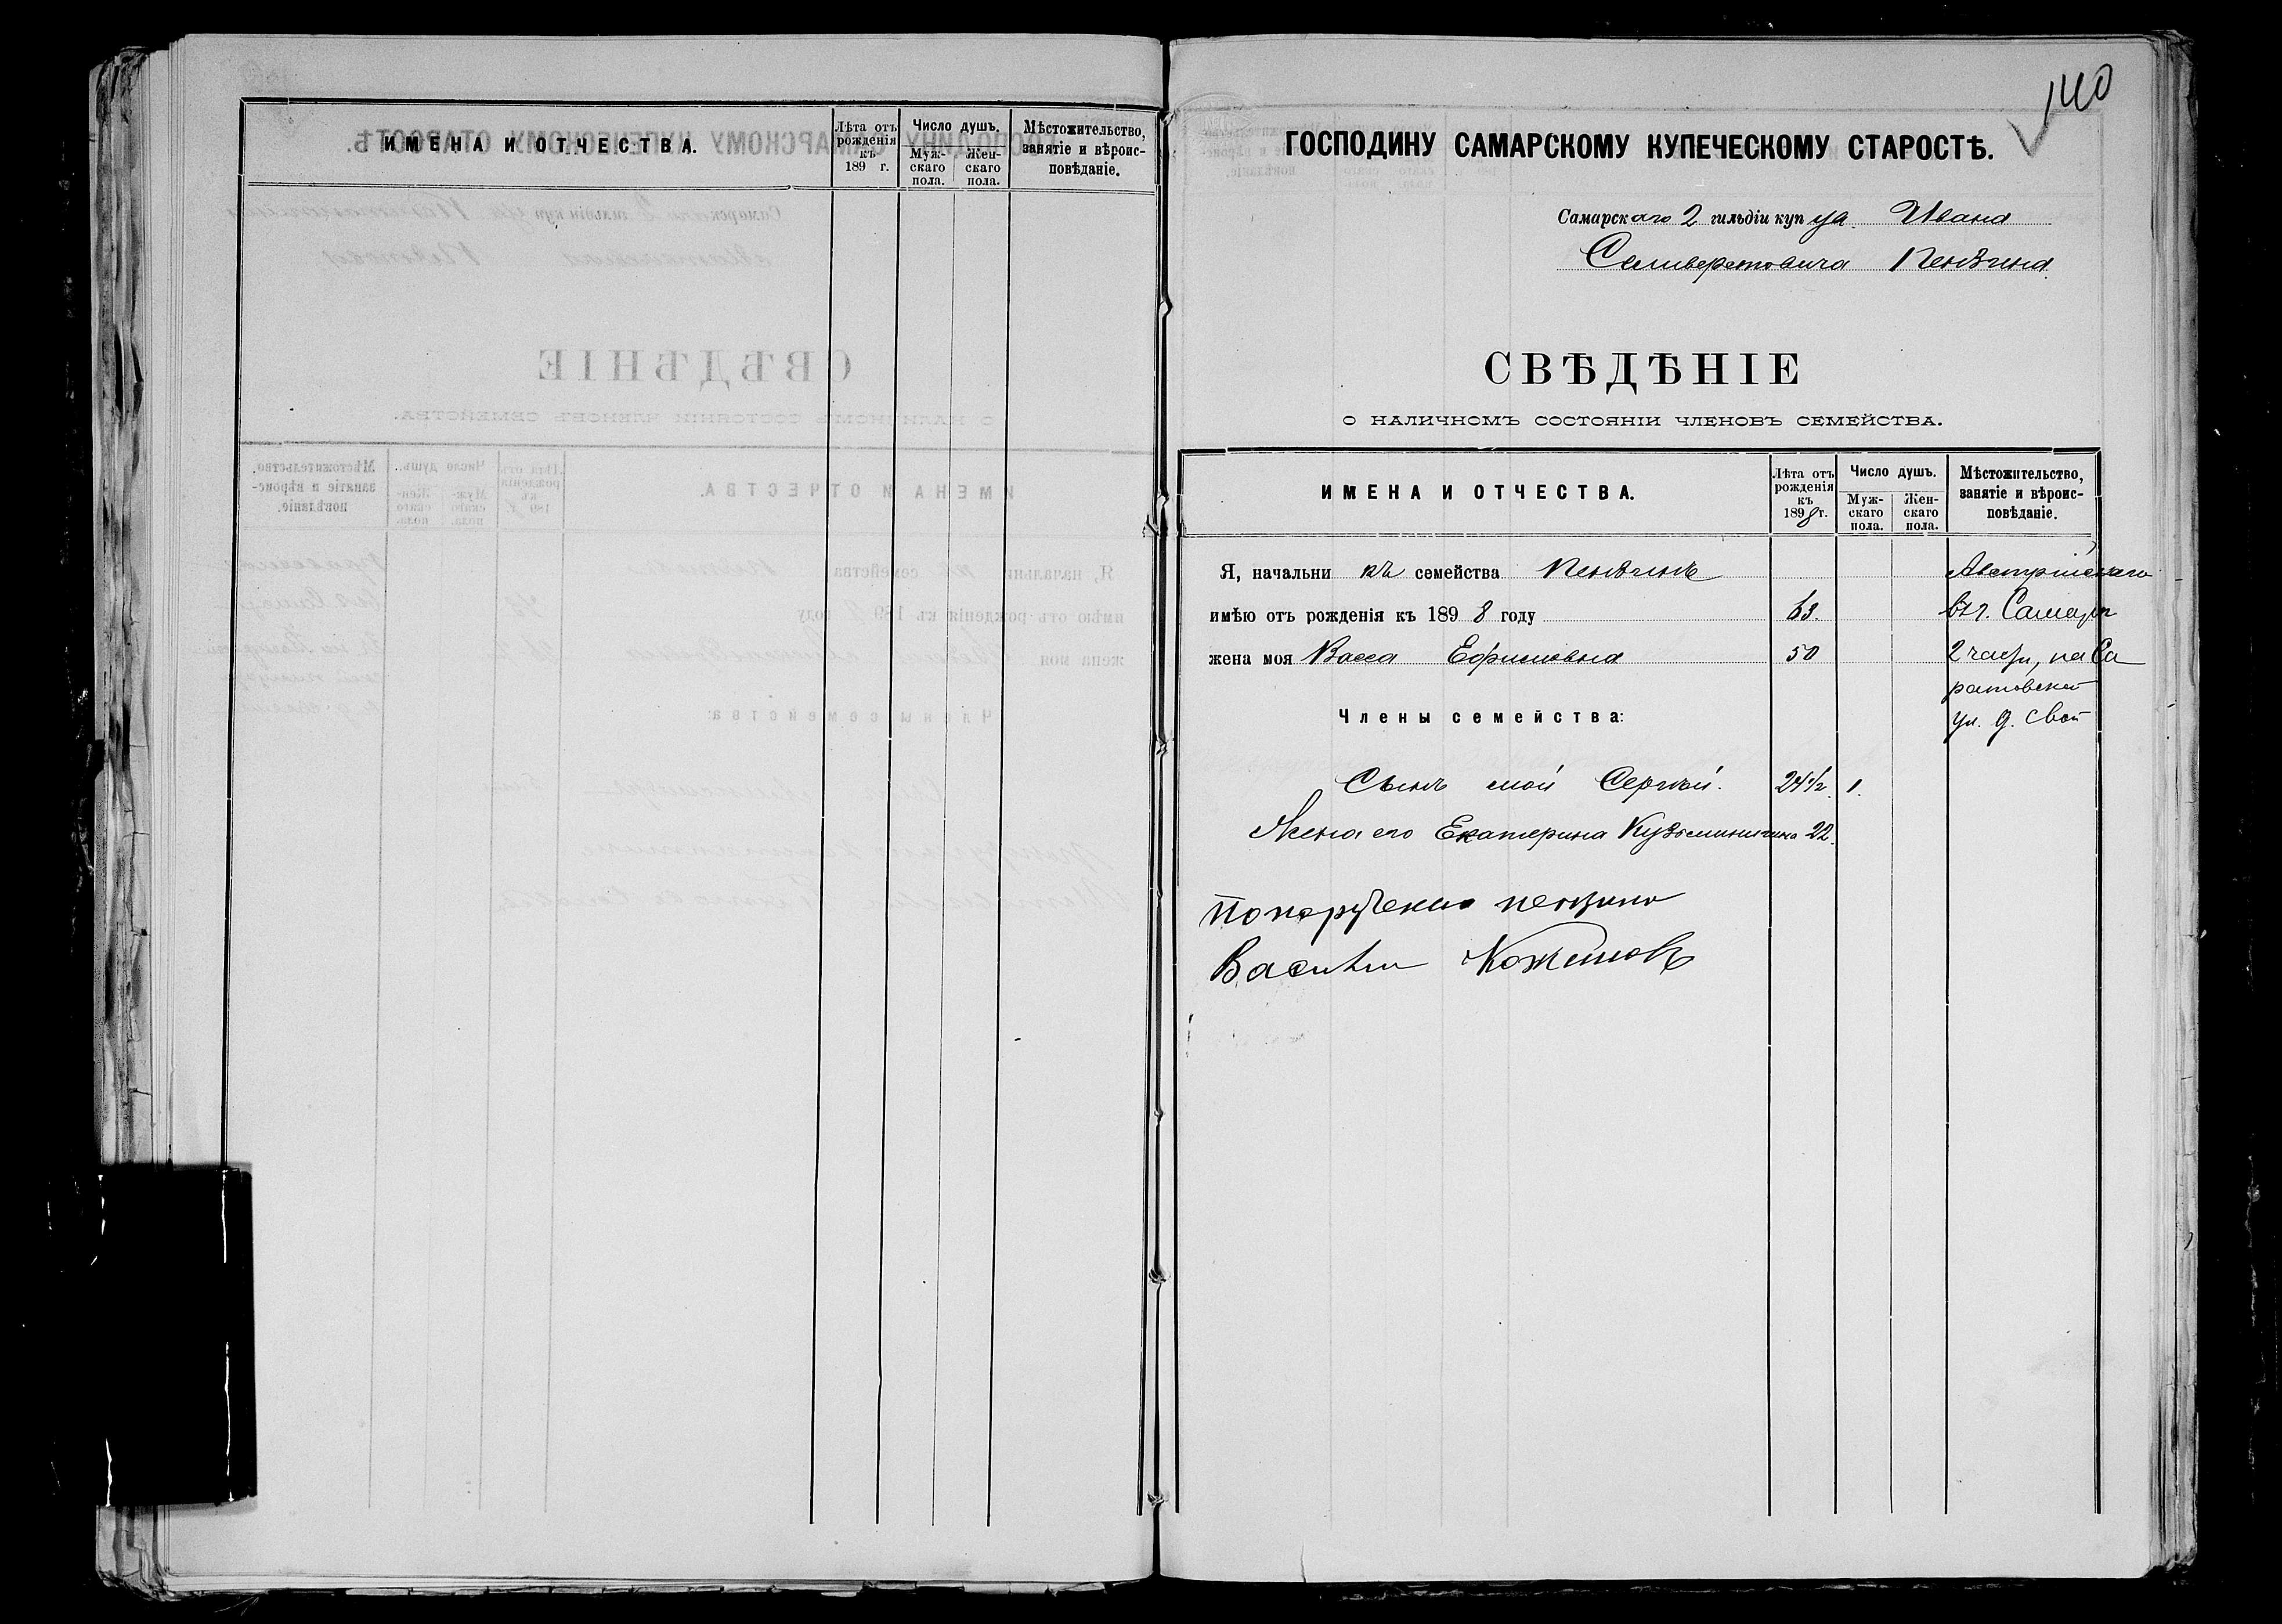 ИМЕНА И ОТЧЕСТВА.
Лѣта отъ рожденія къ 189 г.
Число душъ.
Мужскаго пола.
Женскаго пола.
Мѣстожительство, занятіе и вѣроисповѣданіе.
140
ГОСПОДИНУ САМАРСКОМУ КУПЕЧЕСКОМУ СТАРОСТѢ.
Самарскаго 2 гильдіи купца Ивана
Селиверстовича Пензина.
СВѢДѢНІЕ
О НАЛИЧНОМЪ СОСТОЯНІИ ЧЛЕНОВЪ СЕМЕЙСТВА.
ИМЕНА И ОТЧЕСТВА.
Лѣта отъ
рожденія
къ
1898 г.
Число душъ.
Муж-
скаго
пола.
Жен-
скаго
пола.
Мѣстожительство,
занятіе и вѣроис-
повѣданіе.
Я, начальникъ семейства Пензинъ Австрійскаго
имѣю отъ рожденія къ 1898 году 63. въ г. Самарѣ
жена моя Васса Ефимовна 50 2 части, на Са
ратовской
Члены семейства: ул. д. свой
Сынъ мой Сергѣй. 24 1/2. 1.
Жена его Екатерина Кузьминична 22.
По поручению пензина
Василий Кожевновъ